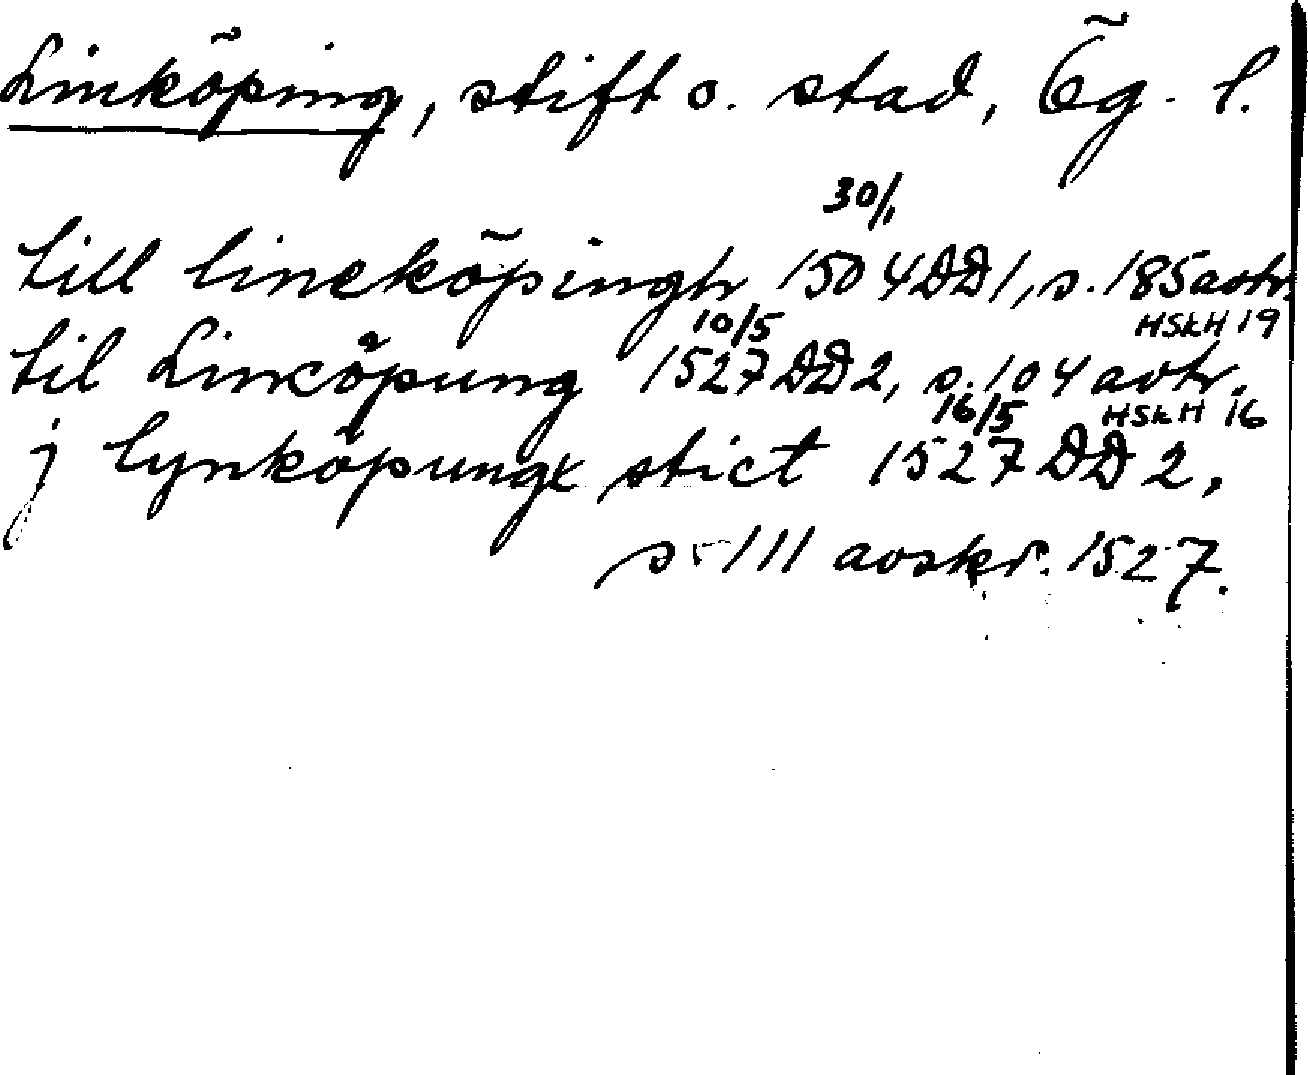 Linköping, stift o. stad, Ög. l.
30/1
till lineköpingh 1504 DD1, s. 185 avtr.
10/5 HSkH 19
til Lincöpung 1527 DD2, s. 104 avtr.
16/5 HSkH 16
j lynköpungx stict 1527 DD 2,
s. 111 avskr. 1527.